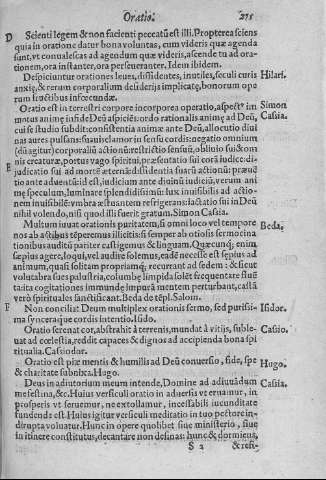 Oratio. 275
D Scienti legem & non facienti peccatũ est illi. Propterea sciens
quia in oratione datur bona voluntas, cum videris quæ agenda
sunt, vt conualescas ad agendum quæ videris, ascende tu ad ora-
tionem, ora instanter, ora perseueranter. Idem ibidem.
Despiciuntur orationes leues, dissidentes, inutiles, seculi curis Hilari.
anxię, & rerum corporalium desiderijs implicatę, bonorum ope
rum fructibus infœcundæ.
Oratio est in terrestri corpore incorporea operatio, Simon
motus animę Deũ aspiciẽs: ordo rationalis animę ad Deũ, Cassia.
cui se studio subdit: consistentia animæ ante Deũ, allocutio diui
nas aures pulsans: suauis clamor in sensu cordis: negatio omnium
(dũ agitur) corporaliũ actionũ: restrictio sensuũ, obliuio sui & om
nis creaturæ, portus vago spiritui, præsentatio sui corã iudice: di-
E iudicatio sui ad mortẽ æternã: dissidentia suarũ actionũ: præud
tio ante aduentũ: id est, iudicium ante diuinũ iudiciũ, verum ani
mę speculum, luminare splendidissimũ: lux inuisibilis ad actio-
nem inuisibilẽ: vmbra æstuantem refrigerans: iactatio sui in Deũ
nihil volendo, nisi quod illi fuerit gratum. Simon Cassia.
Multum iuuat orationis puritatem, si omni loco vel tempore
nos ab actibus tẽperemus illicitis: si semper ab otiosis sermocina Beda.
tionibus auditũ pariter castigemus & linguam. Quæcunq; enim
sæpius agere, loqui, vel audire solemus, eadẽ necesse est sępius ad
animum, quasi solitam propriamq; recurrant ad sedem: & sicut
volutabra sues palustria, columbę limpida solẽt frequentare fluẽ
ta: ita cogitationes immundę impurã mentem perturbant, castã
verò spirituales sanctificant. Beda de tẽpl. Salom.
F Non conciliat Deum multiplex orationis sermo, sed purissi- Isidor.
ma synceraque cordis intentio. Isido.
Oratio serenat cor, abstrahit à terrenis, mundat à vitijs, suble- Cassio.
uat ad cœlestia, reddit capaces & dignos ad accipienda bona spi
ritualia. Cassiodor.
Oratio est piæ mentis & humilis ad Deũ conuersio, fide, spe Hugo.
& charitate subnixa. Hugo.
Deus in adiutorium meum intende, Domine ad adiuuãdum Cassia.
me festina, &c. Huius versiculi oratio in aduersis vt eruamur, in
prosperis vt seruemur, ne extollamur, incessabili iucunditate
fundenda est. Huius igitur versiculi meditatio in tuo pectore in-
dirupta voluatur. Hunc in opere quolibet siue ministerio, siue
in itinere constitutus, decantare non desinas: hunc & dormiens,
S 2 & refi-